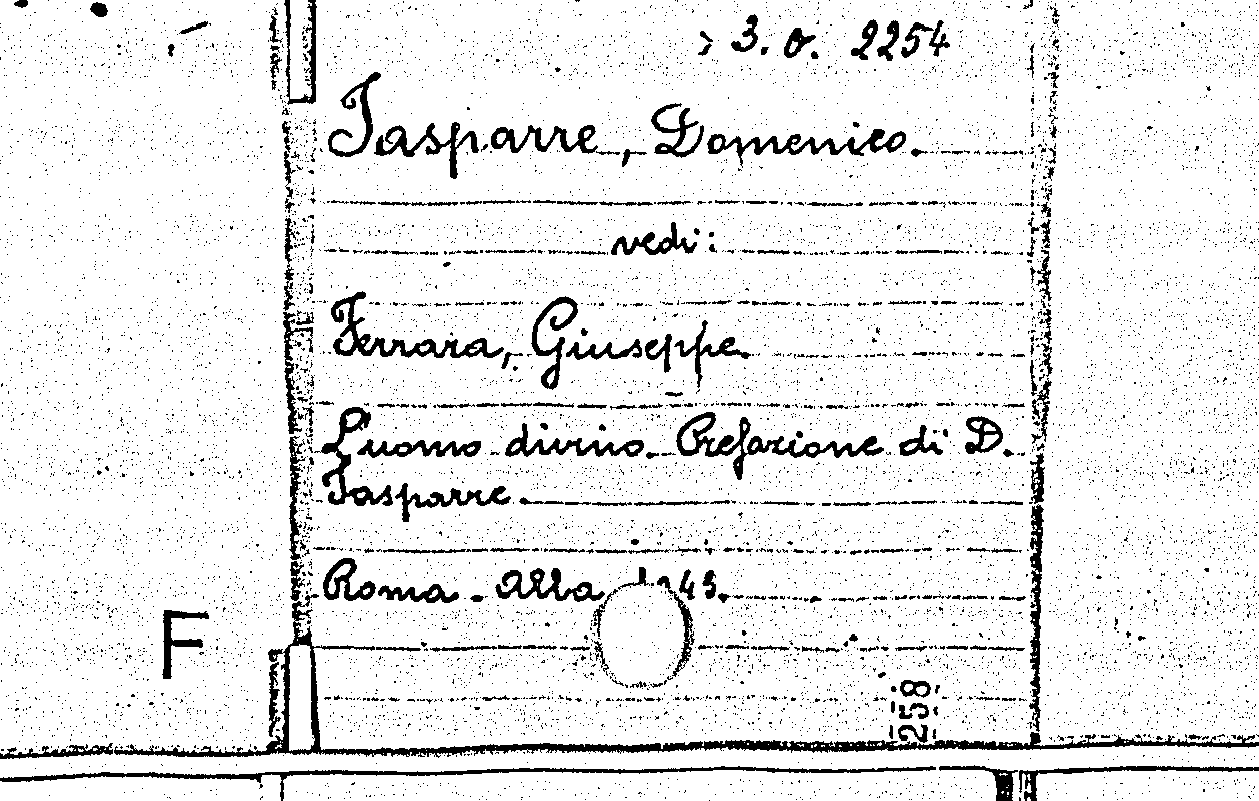 > 3. o. 2254
Iasparre, Domenico.
vedi:
Ferrara, Giuseppe.
L'uomo divino. Prefazione di D.
Iasparre.
Roma. Alba
F
258